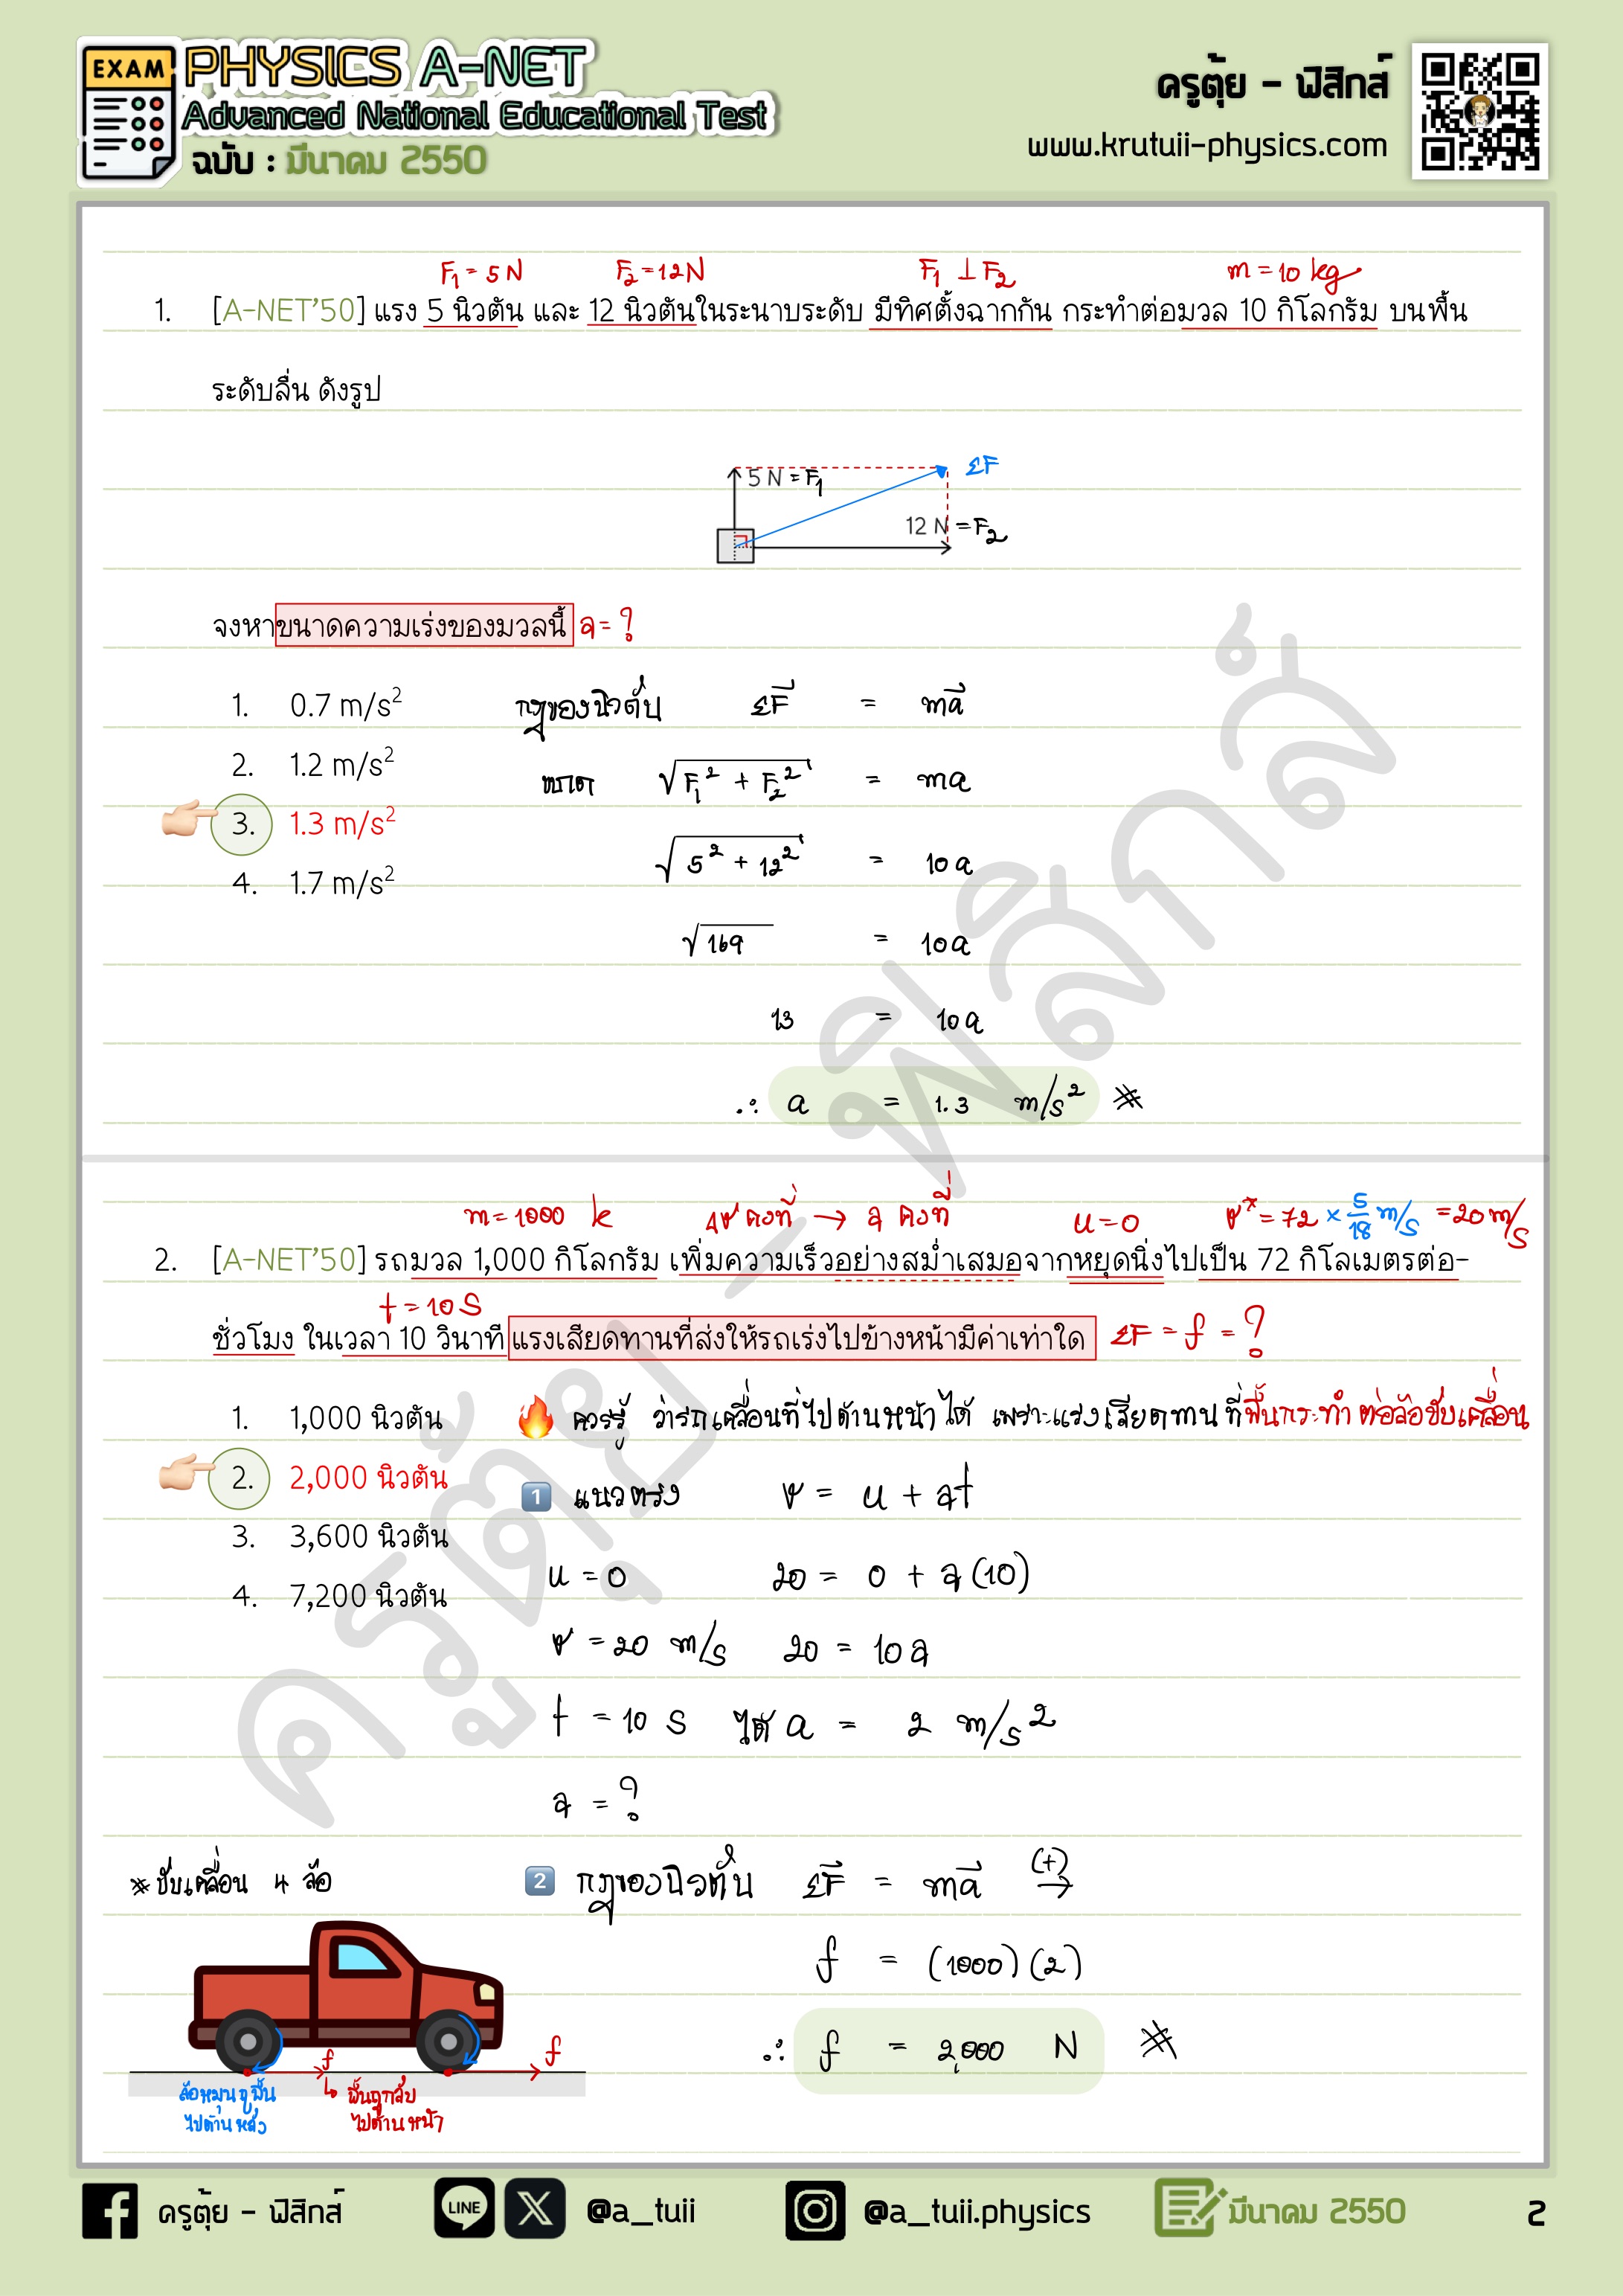 EXAM
PHYSICS A-NET
Advanced National Educational Test
ฉบับ : มีนาคม 2550
ครูตุ้ย - ฟิสิกส์
www.krutuii-physics.com
F₁ = 5 N F₂ = 12 N F₁ ⊥ F₂ m = 10 kg
1. [A-NET'50] แรง 5 นิวตัน และ 12 นิวตันในระนาบระดับ มีทิศตั้งฉากกัน กระทำต่อมวล 10 กิโลกรัม บนพื้น
ระดับลื่น ดังรูป
ΣF
5 N = F₁
12 N = F₂
จงหาขนาดความเร่งของมวลนี้ a = ?
1. 0.7 m/s² กฎของนิวตัน ΣF⃗ = ma⃗
2. 1.2 m/s² ขนาด √(F₁² + F₂²) = ma
3. 1.3 m/s²
√(5² + 12²) = 10a
4. 1.7 m/s²
√169 = 10a
13 = 10a
∴ a = 1.3 m/s² ※
m = 1000 k Δv คงที่ → a คงที่ u = 0 v = 72 × 5/18 m/s = 20 m/s
2. [A-NET'50] รถมวล 1,000 กิโลกรัม เพิ่มความเร็วอย่างสม่ำเสมอจากหยุดนิ่งไปเป็น 72 กิโลเมตรต่อ-
t = 10 s
ชั่วโมง ในเวลา 10 วินาที แรงเสียดทานที่ส่งให้รถเร่งไปข้างหน้ามีค่าเท่าใด ΣF = f = ?
1. 1,000 นิวตัน ควรรู้ ว่ารถเคลื่อนที่ไปด้านหน้าได้ เพราะแรงเสียดทานที่พื้นกระทำต่อล้อขับเคลื่อน
2. 2,000 นิวตัน
1 แนวตรง v = u + at
3. 3,600 นิวตัน
u = 0 20 = 0 + a(10)
4. 7,200 นิวตัน
v = 20 m/s 20 = 10a
t = 10 s ได้ a = 2 m/s²
a = ?
※ ขับเคลื่อน 4 ล้อ
2 กฎของนิวตัน ΣF⃗ = ma⃗ (+) →
f = (1000)(2)
∴ f = 2,000 N ※
f f
ล้อหมุนถูพื้น
ไปด้านหลัง
พื้นถูกลับ
ไปด้านหน้า
ครูตุ้ย - ฟิสิกส์
ครูตุ้ย - ฟิสิกส์ LINE X @a_tuii @a_tuii.physics มีนาคม 2550 2